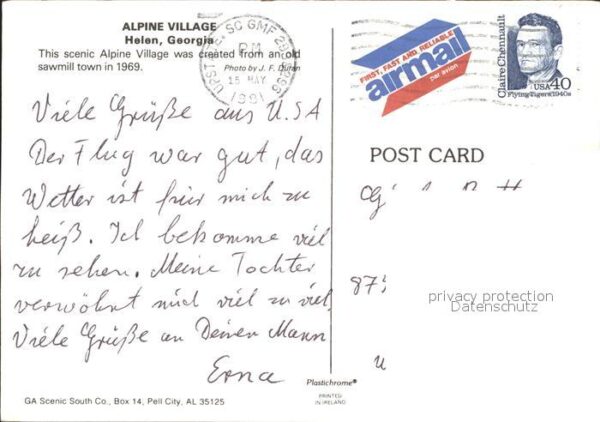 ALPINE VILLAGE
Helen, Georgia
This scenic Alpine Village was created from an old
sawmill town in 1969.
Photo by J. F. Duran
SC GMF
PM
15 MAY
1991
FIRST, FAST AND RELIABLE
airmail
par avion
Claire Chennault
USA 40
Flying Tigers 1940s
Viele Grüße aus USA
Der Flug war gut, das
Wetter ist für mich zu
heiß. Ich bekomme viel
zu sehen. Meine Tochter
verwöhnt mich viel zu viel,
Viele Grüße an Deinen Mann
Erna
POST CARD
privacy protection
Datenschutz
Plastichrome®
PRINTED
IN IRELAND
GA Scenic South Co., Box 14, Pell City, AL 35125